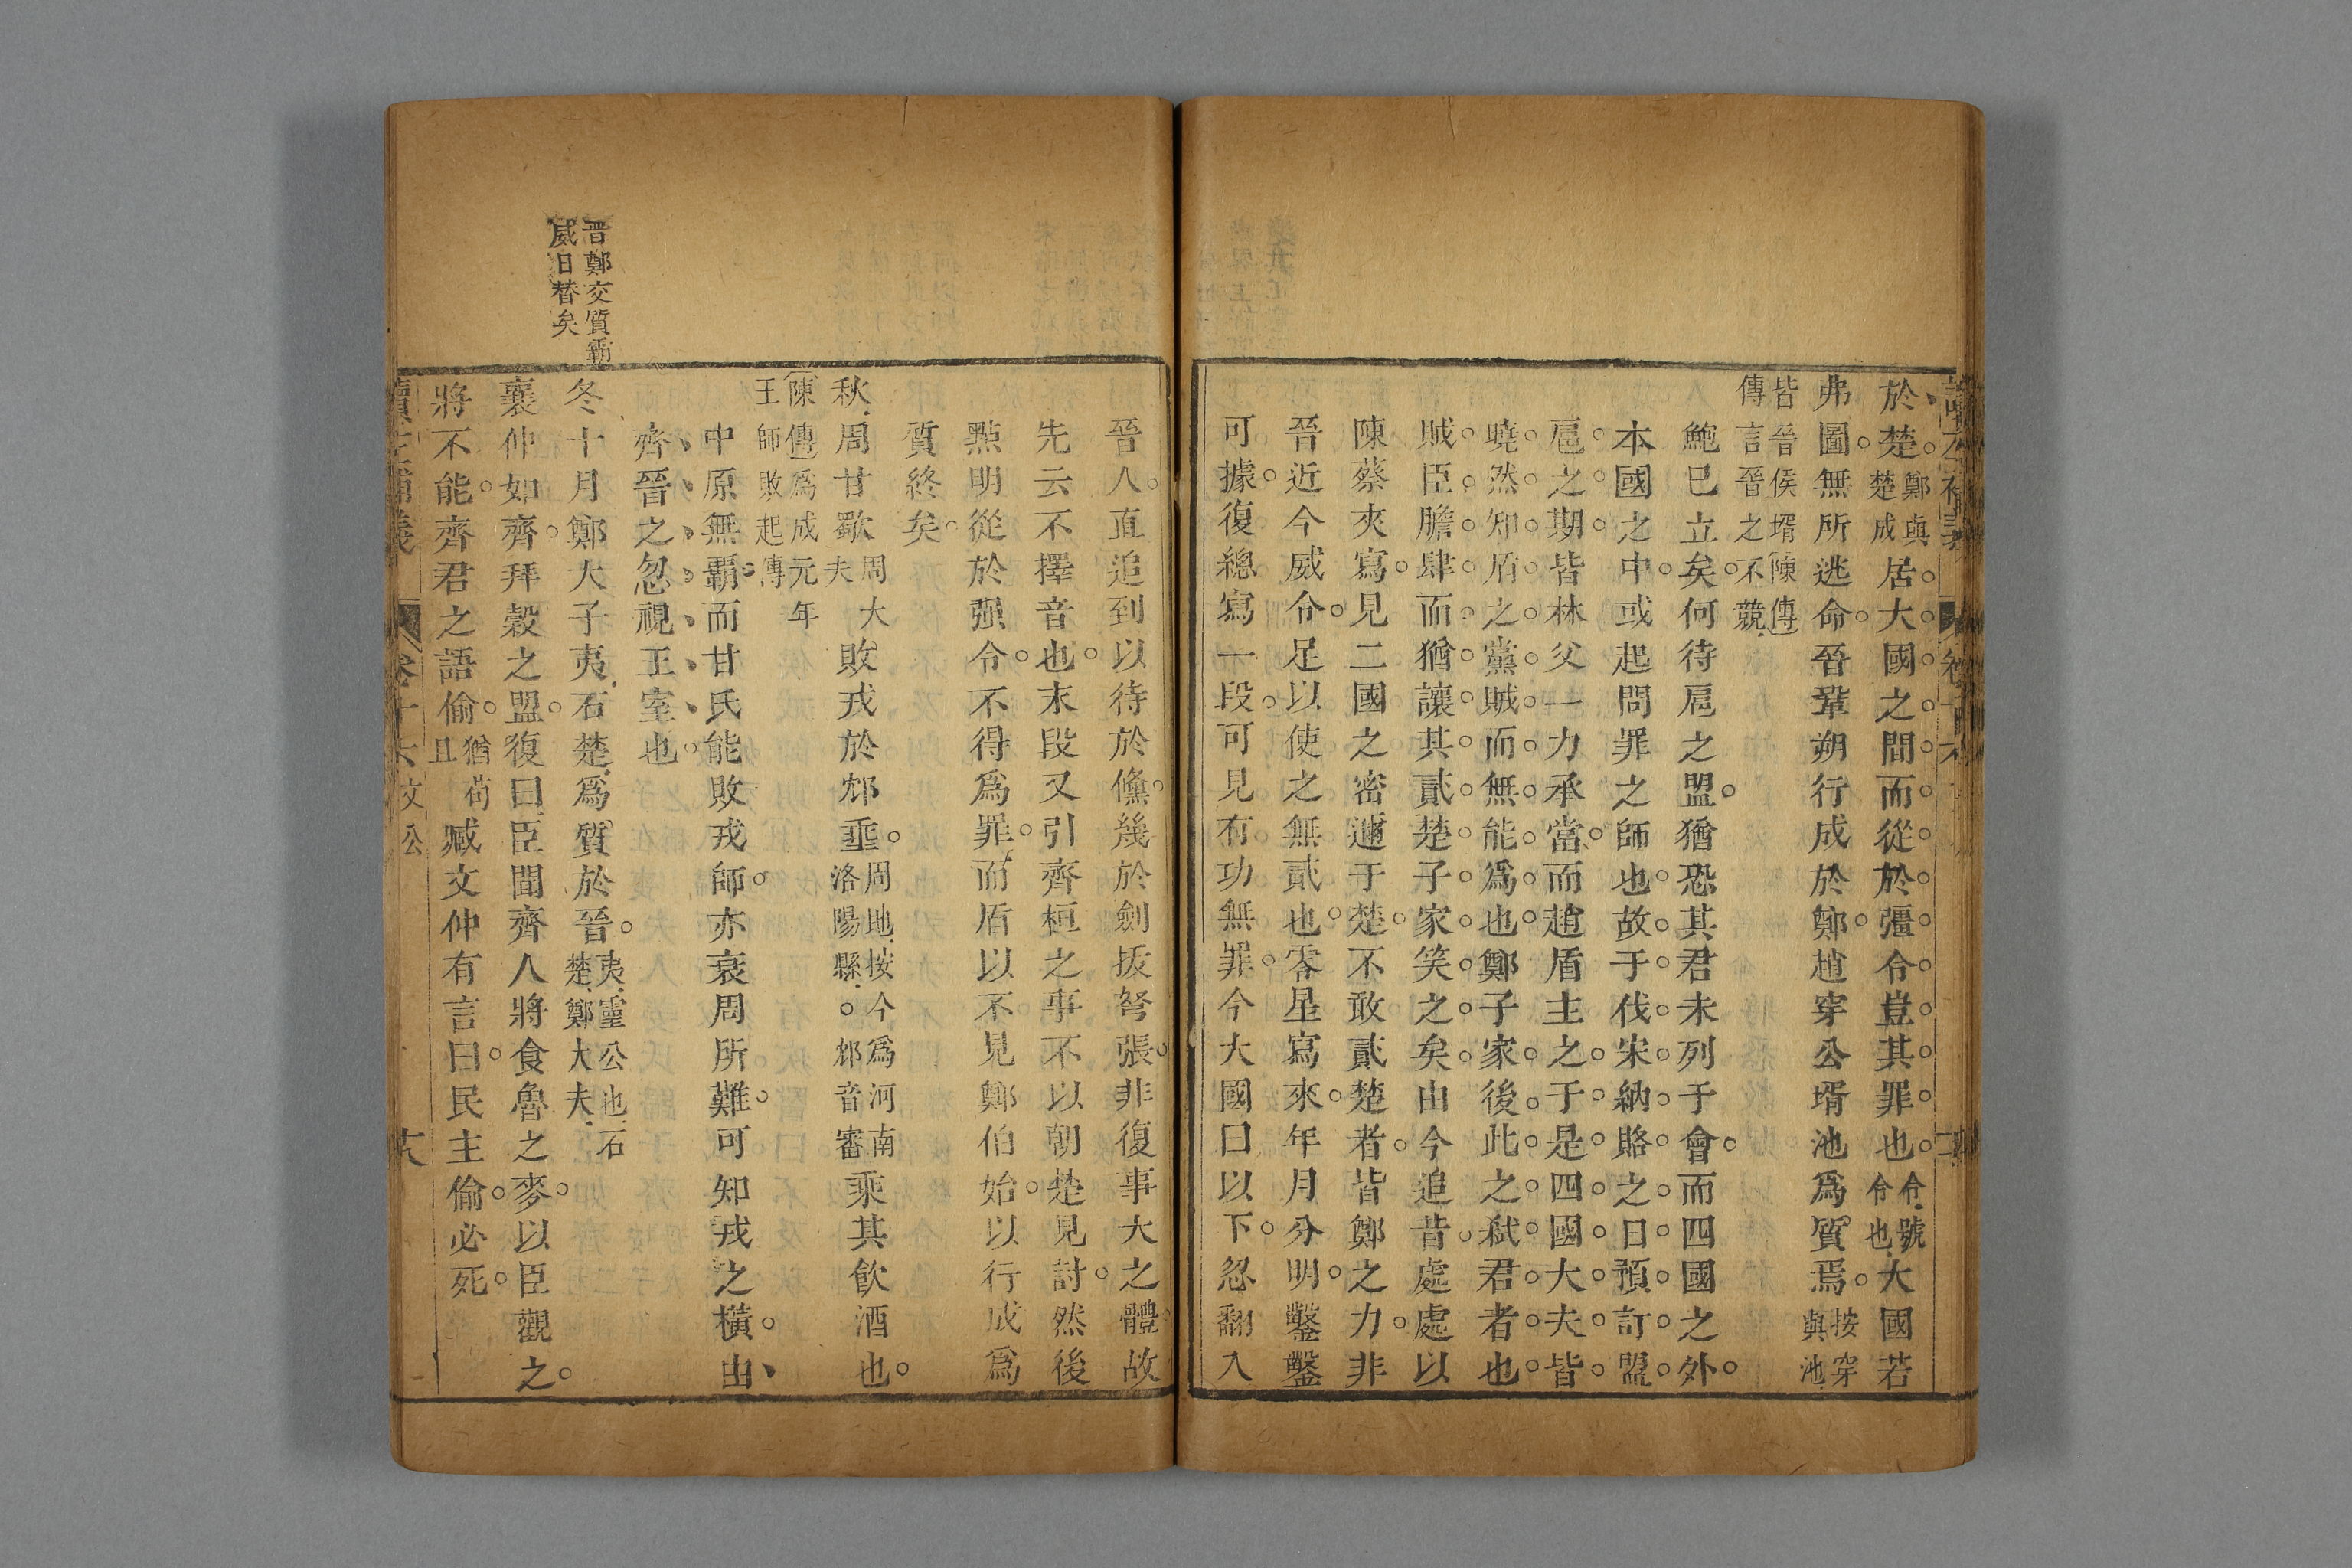 於楚鄭與楚成居大國之間而從於彊令豈其罪也令號令也大國若
弗圖無所逃命晉鞏朔行成於鄭趙穿公壻池爲質焉按穿與池
皆晉侯壻陳傳傳言晉之不競
鮑已立矣何待扈之盟猶恐其君未列于會而四國之外
本國之中或起問罪之師也故于伐宋納賂之日預訂盟
扈之期皆林父一力承當而趙盾主之于是四國大夫皆
曉然知盾之黨賊而無能爲也鄭子家後此之弒君者也
賊臣膽肆而猶讓其貳楚子家笑之矣由今追昔處處以
陳蔡夾寫見二國之密邇于楚不敢貳楚者皆鄭之力非
晉近今威令足以使之無貳也零星寫來年月分明鑿鑿
可據復總寫一段可見有功無罪今大國曰以下忽翻入
晉人直追到以待於鯈幾於劍拔弩張非復事大之體故
先云不擇音也末段又引齊桓之事不以朝楚見討然後
點明從於强令不得爲罪而盾以不見鄭伯始以行成爲
質終矣
秋周甘歜周大夫敗戎於邥垂周地按今爲河南洛陽縣邥音審乘其飲酒也
陳傳爲成元年王師敗起傳
中原無霸而甘氏能敗戎師亦衰周所難可知戎之橫由
齊晉之忽視王室也
晋鄭交質霸
威日替矣
冬十月鄭大子夷石楚爲質於晉夷靈公也石楚鄭大夫
襄仲如齊拜穀之盟復曰臣聞齊人將食魯之麥以臣觀之
將不能齊君之語偷猶苟且臧文仲有言曰民主偷必死
讀左補義 卷十六 文公 十八